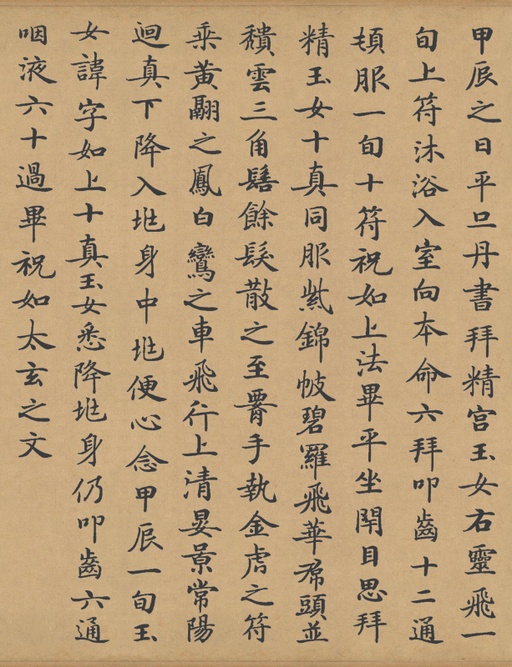 甲辰之日平旦丹書拜精宮玉女右靈飛一
旬上符沐浴入室向本命六拜叩齒十二通
頓服一旬十符祝如上法畢平坐閉目思拜
精玉女十真同服紫錦帔碧羅飛華帬頭並
穨雲三角髻餘髮散之至腰手執金虎之符
乘黃翮之鳳白鸞之車飛行上清晏景常陽
迴真下降入兆身中兆便心念甲辰一旬玉
女諱字如上十真玉女悉降兆身仍叩齒六通
咽液六十過畢祝如太玄之文